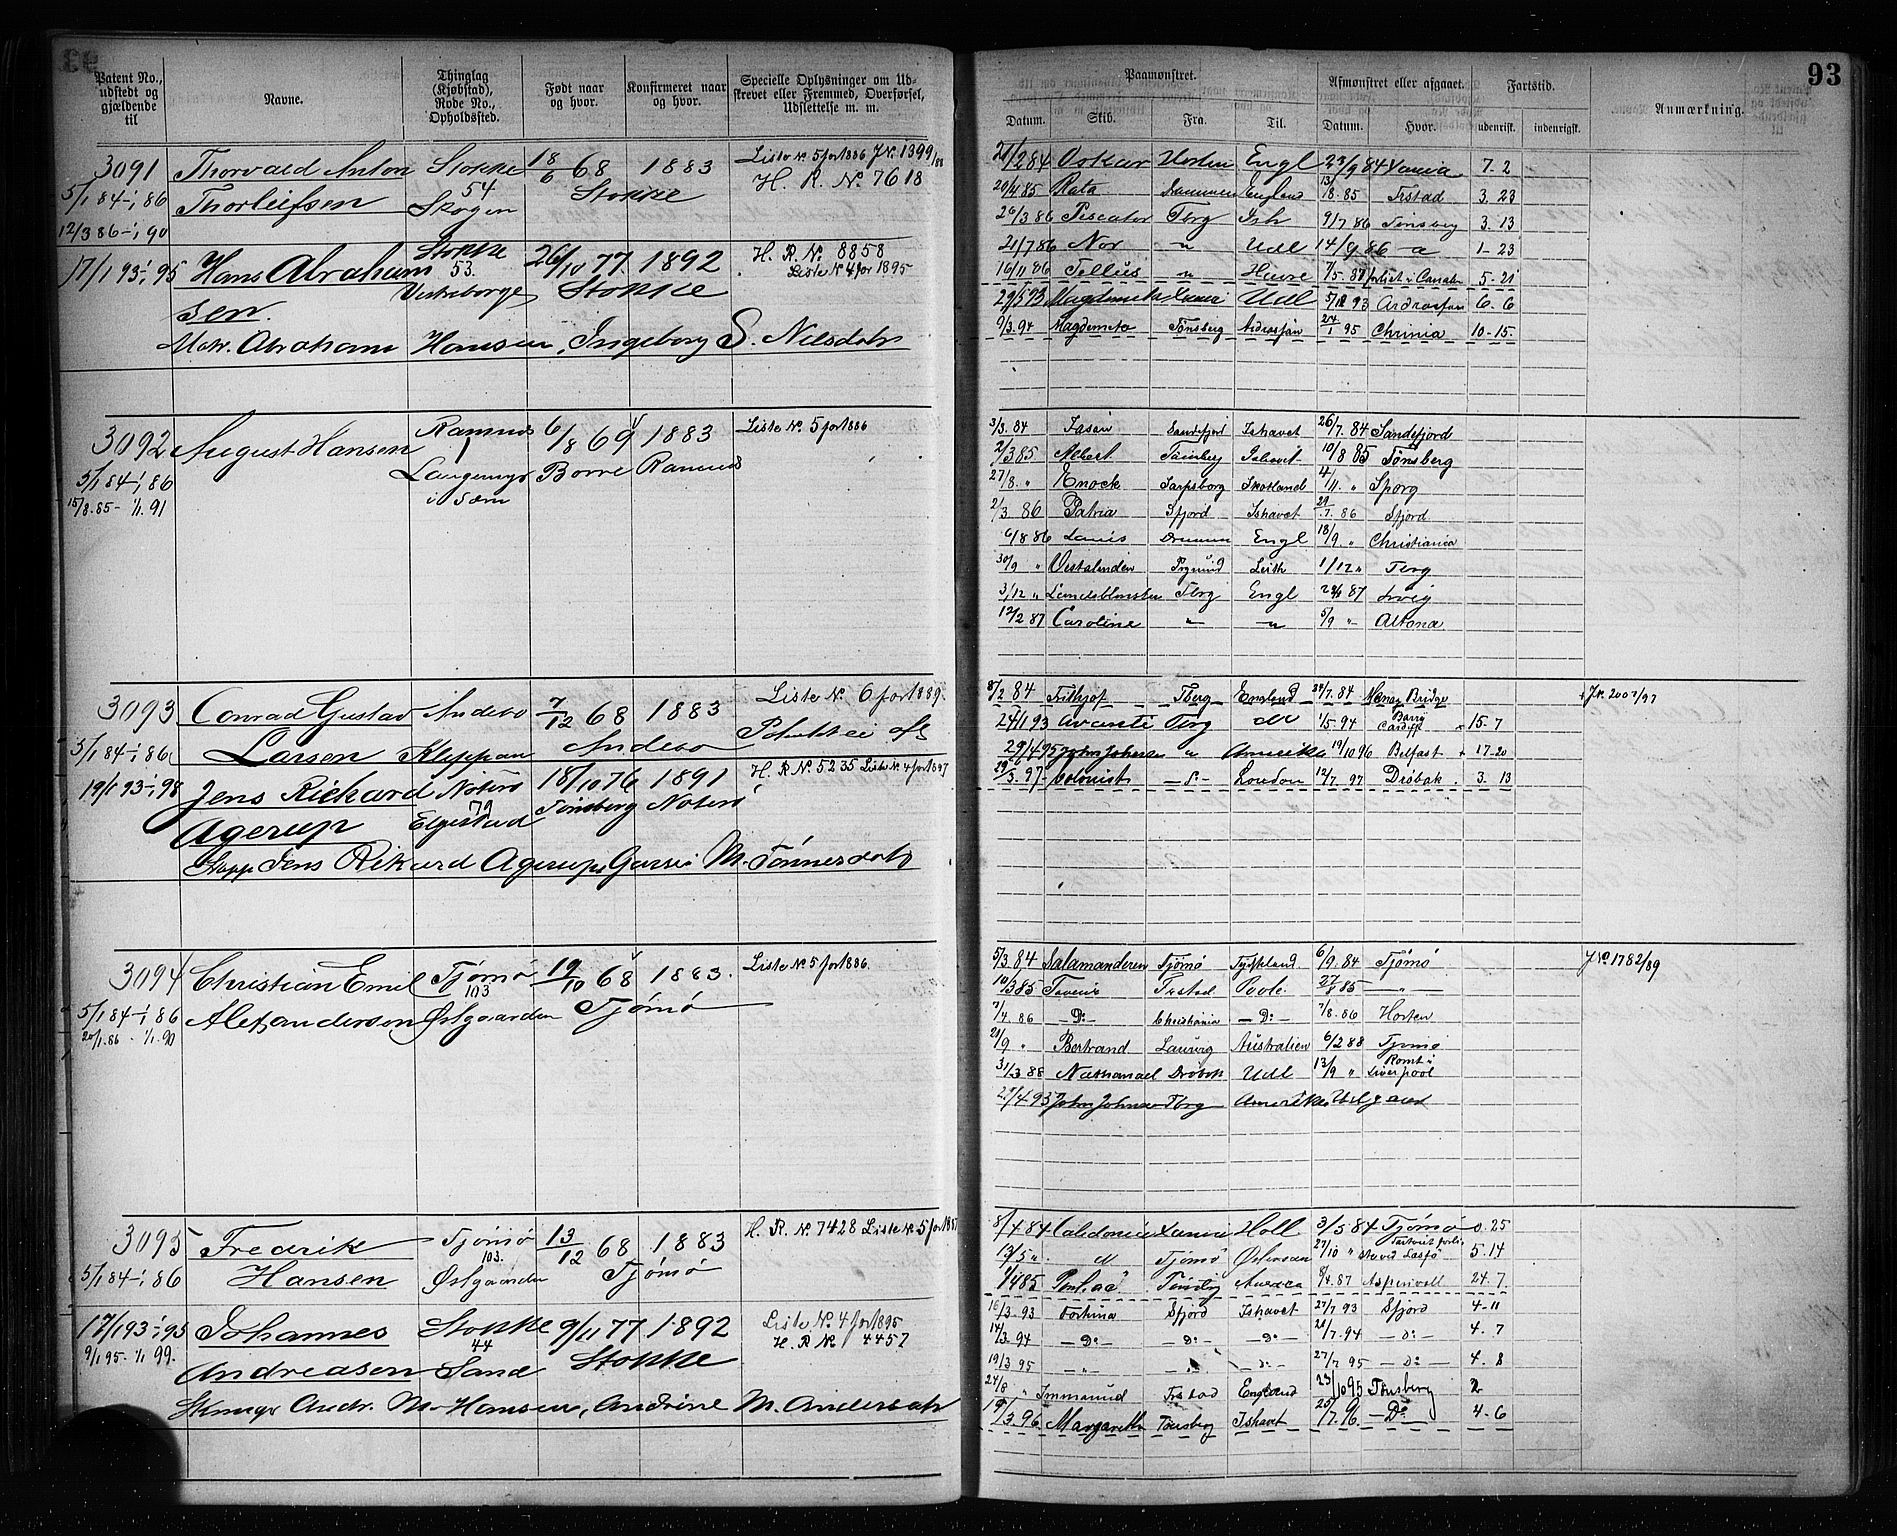 93
Patent No., udstedt og gjældende til
Navne.
Thinglag (Kjøbstad), Rode No., Opholdssted.
Født naar og hvor.
Konfirmeret naar og hvor.
Specielle Oplysninger om Udskrevet eller Fremmed, Overførsel, Udslettelse m. m.
Paamønstret.
Datum. Skib. Fra. Til.
Afmønstret eller afgaaet.
Datum. Hvor.
Fartstid.
udenrisk. indenrigsk.
Anmærkning.
3091 Thorvald Anton Stokke 18/6 68 1883 Liste No. 5 for 1886 J.No. 1399/88
5/1 84-1/1 86 Thorleifsen 54 Skogen Stokke H. R. No. 7618
12/3 86-1/1 90
17/1 93-1/1 95 Hans Abraham Stokke 26/10 77 1892 H. R. No. 8858
sen. 53. Vestreborge Stokke Liste No. 4 for 1895
Matr. Abraham Hansen, Ingeborg S. Nilsdatr
21/2 84 Oskar Horten Engl 23/9 84 7-2
20/4 85 Rata Drammen England 13/8 85 Frstad 3. 23
20/3 86 Piscator Tbrg Ish 9/7 86 Tønsberg 3. 13
21/7 86 Nor " Udl 14/9 86 " 1-23
16/11 86 Tellus " Havre 7/5. 87 5-21
29/5 93 Magdemeta Udl 5/12 93 Ardrossan 6-6
9/3.94 Magdemeta Tønsberg Ardrossan 24/1 95 Chrinia 10-15.
3092 August Hansen Ramnes 6/8 69 1883 Liste No. 5 for 1886
5/1 84-1/1 86 1 Langemyr Borre Ramnes
15/8.85-1/1.91 i Sem
3/3. 84 Jasön Sandefjord Ishavet 26/7. 84 Sandefjord
2/3 85 Albert Tønsberg Ishavet 10/8 85 Tønsberg
27/8. " Enock Sarpsborg Skotland 4/11 " Sporg
2/3 86 Patria Sfjord Ishavet 29/7. 86 Sfjord
6/8 86 Louis Drammen Engl 18/9 " Christiania
30/9 " Vestalinden Prgrund Leith 1/12 " Tbrg
3/12 " Landsblomsten Tbrg Engl 87 Lrvig
12/2 87 Caroline " " 5/9 " Altona
3093 Conrad Gustav Andebo 7/12 68 1883 Liste No. 6 for 1889.
5/1 84-1/1 86 Larsen Kleppan Andebo
19/1 93-1/1 98 Jens Rickard Nøterø 18/10 76 1891 H. R. No. 5235 Liste No. 4 for 1897
Agerup 79 Elgestad Tønsberg Nøterø
Skapp Jens Rikard Agerup, Gurine M. Tønnesdatr
8/2 84 Frithjof Tberg England 24/7. 84 Menay Bridge J.No. 2002/97
24/1 93 Avanti Tbrg do 1/5-94 Barry Cardiff 15. 7
29/4 95 John Johnson " Amerika 19/10 96 Belfast 17-20
29/3-97- Colonist London 12/7. 97 Drøbak. 3. 13
3094 Christian Emil Tjømø 19/10 68 1883. Liste No. 5 for 1886.
5/1 84-1/1 86 Alexandersen 103 Østgaarden Tjømø
20/1.86. 1/1.90
5/3.84 Salamanderen Tjømø Tydskland. 6/9.84 Tjømø J.No. 1782/89
10/3 85 Frstad Poole. 27/8 85 — " —
7/4. 86 — Do — Christiania — Do — 7/8.86 Horten
21/9 " Bertrand Laurvig Australien 6/2 88 Tjømø
31/3 88 Nathanael Drøbak Udl 13/9 " Rømt i Liverpool
29/4 95 John Johnson Tbrg Amerika Udgaaet
3095 Fredrik Tjømø 13/12 68 1883 H. R. No. 7428 Liste No. 5 for 1887
5/1 84-1/1 86 Hansen 103. Østgaarden Tjømø
17/1 93-1/1 95 Johannes Stokke 9/11 77 1892 Liste No. 4 for 1895
9/1 95. 1/1 99. Andreasen 44 Sand Stokke H. R. No. 4457
Andr. M. Hansen, Andrine M. Andersdatr
8/4 84 Caledonia Holl 3/5 84 Tjømø 0. 25
13/5 " Tjømø Østersøen 27/10 " 5. 14
1/4 85 Tønsbg America 8/4.87 Aspinvall 24. 7
16/3-93 Fortuna Sfjord Ishavet 27/7 93 Sfjord 4-11
14/3.94 — Do — — Do — — Do — 21/7-94 — Do — 4. 7
19/3 95 — " — — " — — Do — 27/7 95 — Do — 4. 8
24/8 " Immanuel Frstad England 23/10 95 Tønsberg 2
19/3.96 Margareth Tønsberg Ishavet 25/7.96. — Do 4-6